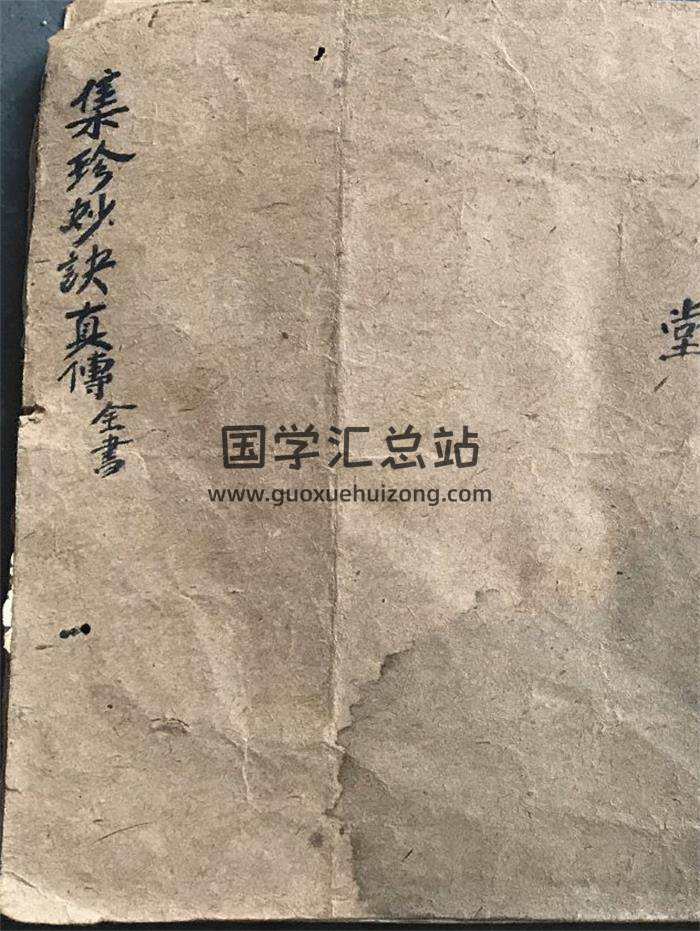 堂
集珍妙訣真傳全書
国学汇总站
www.guoxuehuizong.com